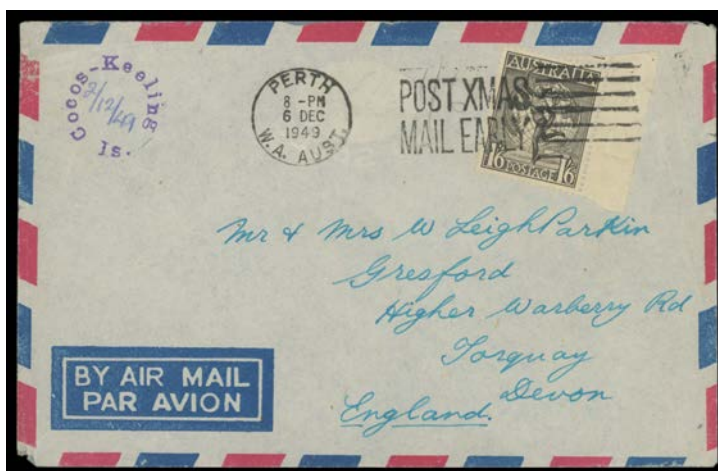 Cocos-Keeling Is.
2/12/49
PERTH
8 - PM
6 DEC
1949
W.A. AUST.
POST XMAS
MAIL EARLY
AUSTRALIA
1/6 POSTAGE 1/6
Mr & Mrs W Leigh Parkin
Gresford
Higher Warberry Rd
Torquay
Devon
England.
BY AIR MAIL
PAR AVION